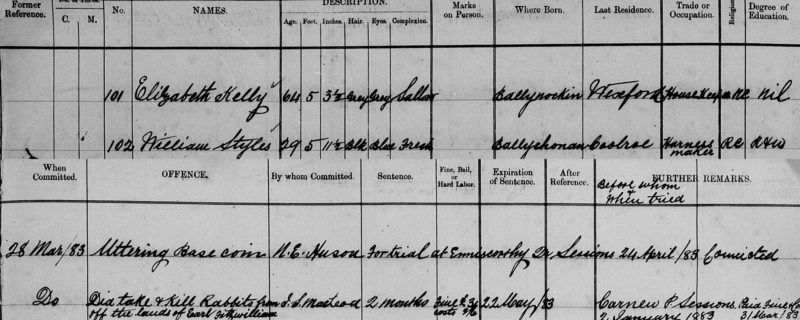 Former Reference. C. M. No. NAMES. DESCRIPTION. Age. Feet. Inches. Hair. Eyes. Complexion. Marks on Person. Where Born. Last Residence. Trade or Occupation. Religion Degree of Education.
101 Elizabeth Kelly 64 5 3½ Grey Grey Sallow Ballyrockin Wexford House Keeper RC nil
102 William Styles 29 5 11½ Blk Blue Fresh Ballyshonan Coolroe Harness maker RC R&W
When Committed. OFFENCE. By whom Committed. Sentence. Fine, Bail, or Hard Labor. Expiration of Sentence. After Reference. FURTHER REMARKS.
Before whom & when tried
28 Mar/83 Uttering Base coin N.E. For trial at Enniscorthy Qr. Sessions 24 April/83 Convicted
Do Did take & kill Rabbits from J.S. Macleod 2 months Fine & costs 22 May/83 Carnew P. Sessions Paid Fine
off the lands of Earl Fitzwilliam 2 January 1883 31 Mar/83